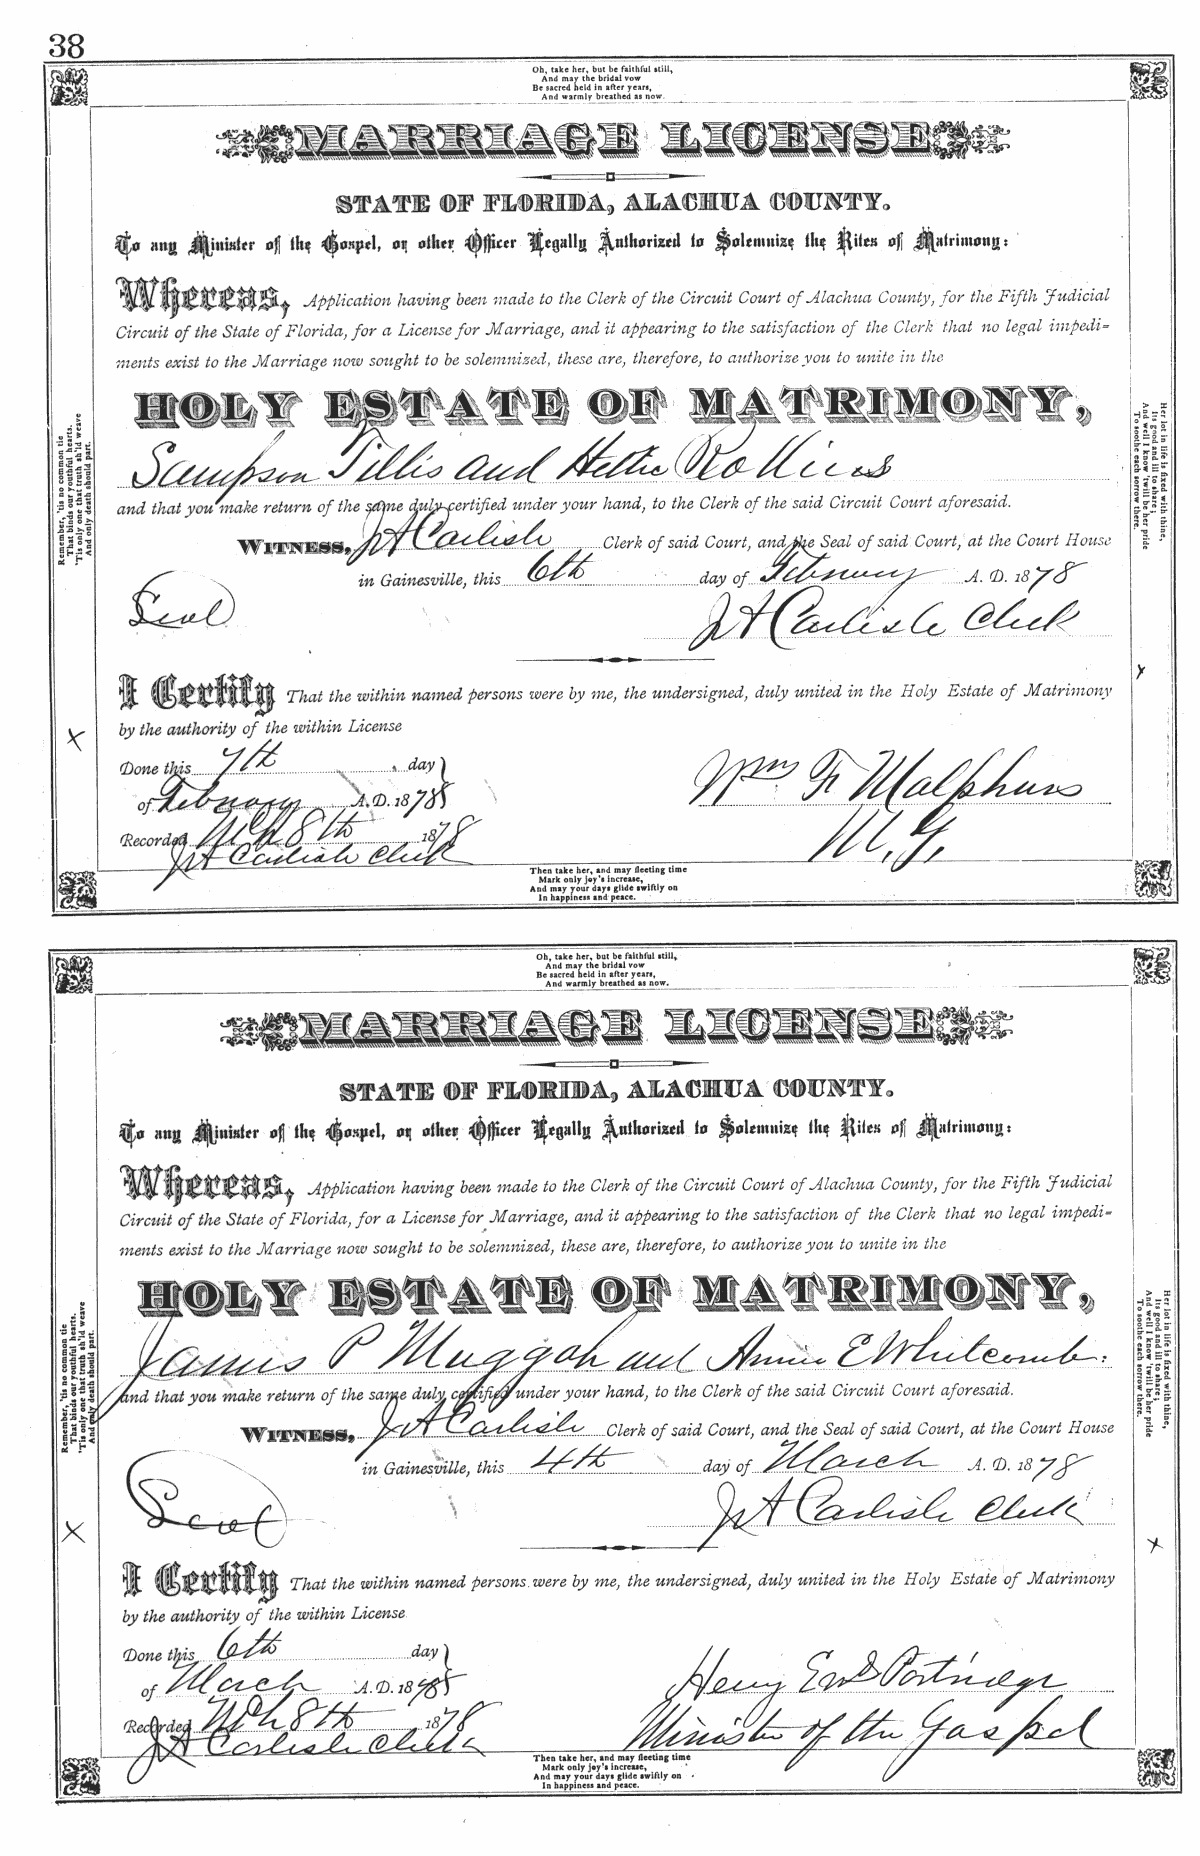 38
Oh, take her, but be faithful still,
And may the bridal vow
Be sacred held in after years,
And warmly breathed as now.
MARRIAGE LICENSE
STATE OF FLORIDA, ALACHUA COUNTY.
To any Minister of the Gospel, or other Officer Legally Authorized to Solemnize the Rites of Matrimony:
Whereas, Application having been made to the Clerk of the Circuit Court of Alachua County, for the Fifth Judicial
Circuit of the State of Florida, for a License for Marriage, and it appearing to the satisfaction of the Clerk that no legal impedi-
ments exist to the Marriage now sought to be solemnized, these are, therefore, to authorize you to unite in the
HOLY ESTATE OF MATRIMONY,
Sampson Tillis and Hettie Rollins
and that you make return of the same duly certified under your hand, to the Clerk of the said Circuit Court aforesaid.
WITNESS, J A Carlisle Clerk of said Court, and the Seal of said Court, at the Court House
in Gainesville, this 6th day of February A. D. 1878
Seal
J A Carlisle Clerk
I Certify That the within named persons were by me, the undersigned, duly united in the Holy Estate of Matrimony
by the authority of the within License
Done this 7th day
of February A. D. 1878
Wm F Malphurs
Recorded Mch 8th 1878
M. G.
J A Carlisle Clerk
Then take her, and may fleeting time
Mark only joy's increase,
And may your days glide swiftly on
In happiness and peace.
Remember, 'tis no common tie
That binds our youthful hearts,
'Tis only one that truth sh'ld weave
And only death should part.
Her lot in life is fixed with thine,
Its good and ill to share;
And well I know 'twill be her pride
To soothe each sorrow there.
Oh, take her, but be faithful still,
And may the bridal vow
Be sacred held in after years,
And warmly breathed as now.
MARRIAGE LICENSE
STATE OF FLORIDA, ALACHUA COUNTY.
To any Minister of the Gospel, or other Officer Legally Authorized to Solemnize the Rites of Matrimony:
Whereas, Application having been made to the Clerk of the Circuit Court of Alachua County, for the Fifth Judicial
Circuit of the State of Florida, for a License for Marriage, and it appearing to the satisfaction of the Clerk that no legal impedi-
ments exist to the Marriage now sought to be solemnized, these are, therefore, to authorize you to unite in the
HOLY ESTATE OF MATRIMONY,
James P Muggah and Annie E Whitcomb:
and that you make return of the same duly certified under your hand, to the Clerk of the said Circuit Court aforesaid.
WITNESS, J A Carlisle Clerk of said Court, and the Seal of said Court, at the Court House
in Gainesville, this 4th day of March A. D. 1878
Seal
J A Carlisle Clerk
I Certify That the within named persons were by me, the undersigned, duly united in the Holy Estate of Matrimony
by the authority of the within License
Done this 6th day
of March A. D. 1878
Henry Ewd Partridge
Recorded Mch 8th 1878
Minister of the Gospel
J A Carlisle Clerk
Then take her, and may fleeting time
Mark only joy's increase,
And may your days glide swiftly on
In happiness and peace.
Remember, 'tis no common tie
That binds our youthful hearts.
'Tis only one that truth sh'ld weave
And only death should part.
Her lot in life is fixed with thine,
Its good and ill to share;
And well I know 'twill be her pride
To soothe each sorrow there.